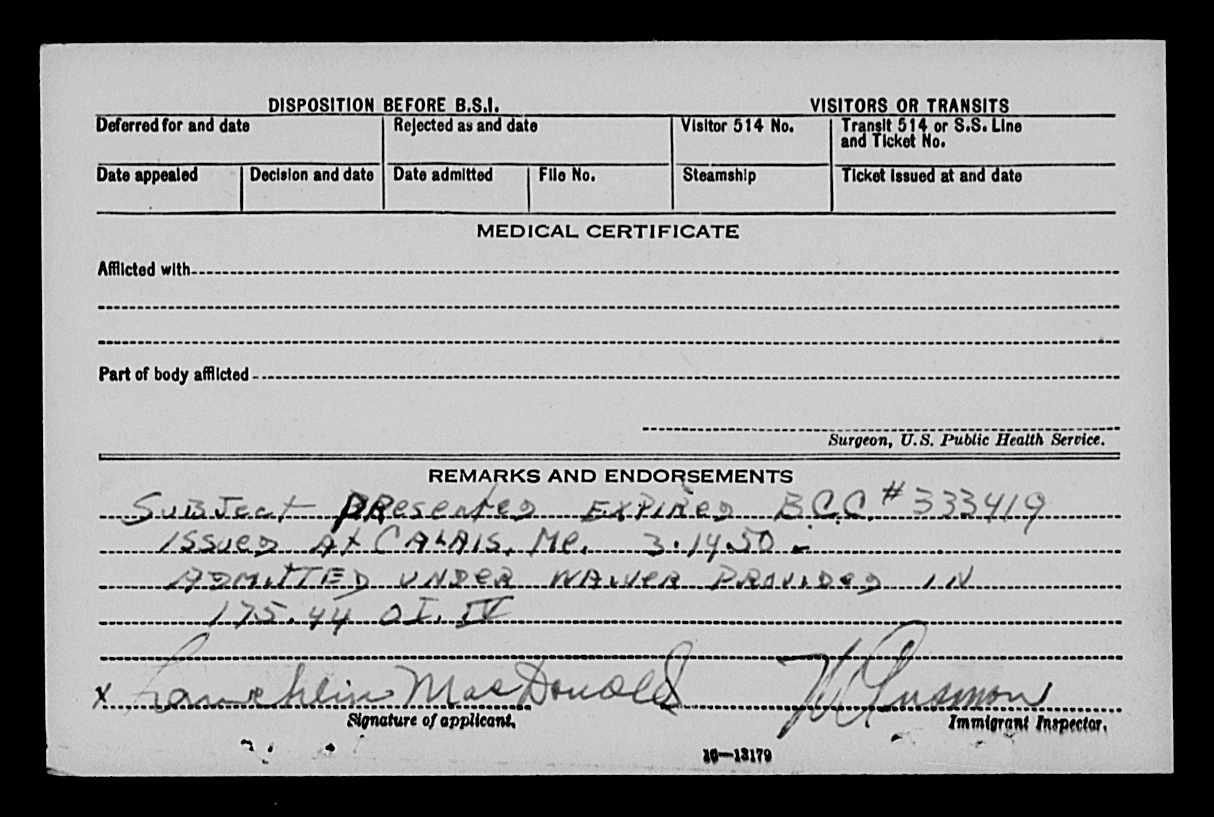 DISPOSITION BEFORE B.S.I. VISITORS OR TRANSITS
Deferred for and date Rejected as and date Visitor 514 No. Transit 514 or S.S. Line
and Ticket No.
Date appealed Decision and date Date admitted File No. Steamship Ticket issued at and date
MEDICAL CERTIFICATE
Afflicted with
Part of body afflicted
Surgeon, U.S. Public Health Service.
REMARKS AND ENDORSEMENTS
Subject Presented Expired B.C.C. # 333419
issued At CALAIS, Me. 3.14.50 -
ADMITTED UNDER WAIVER PROVIDED IN
175.44 OI. IV
x Lauchlin MacDonald
Signature of applicant. Immigrant Inspector.
16—13179